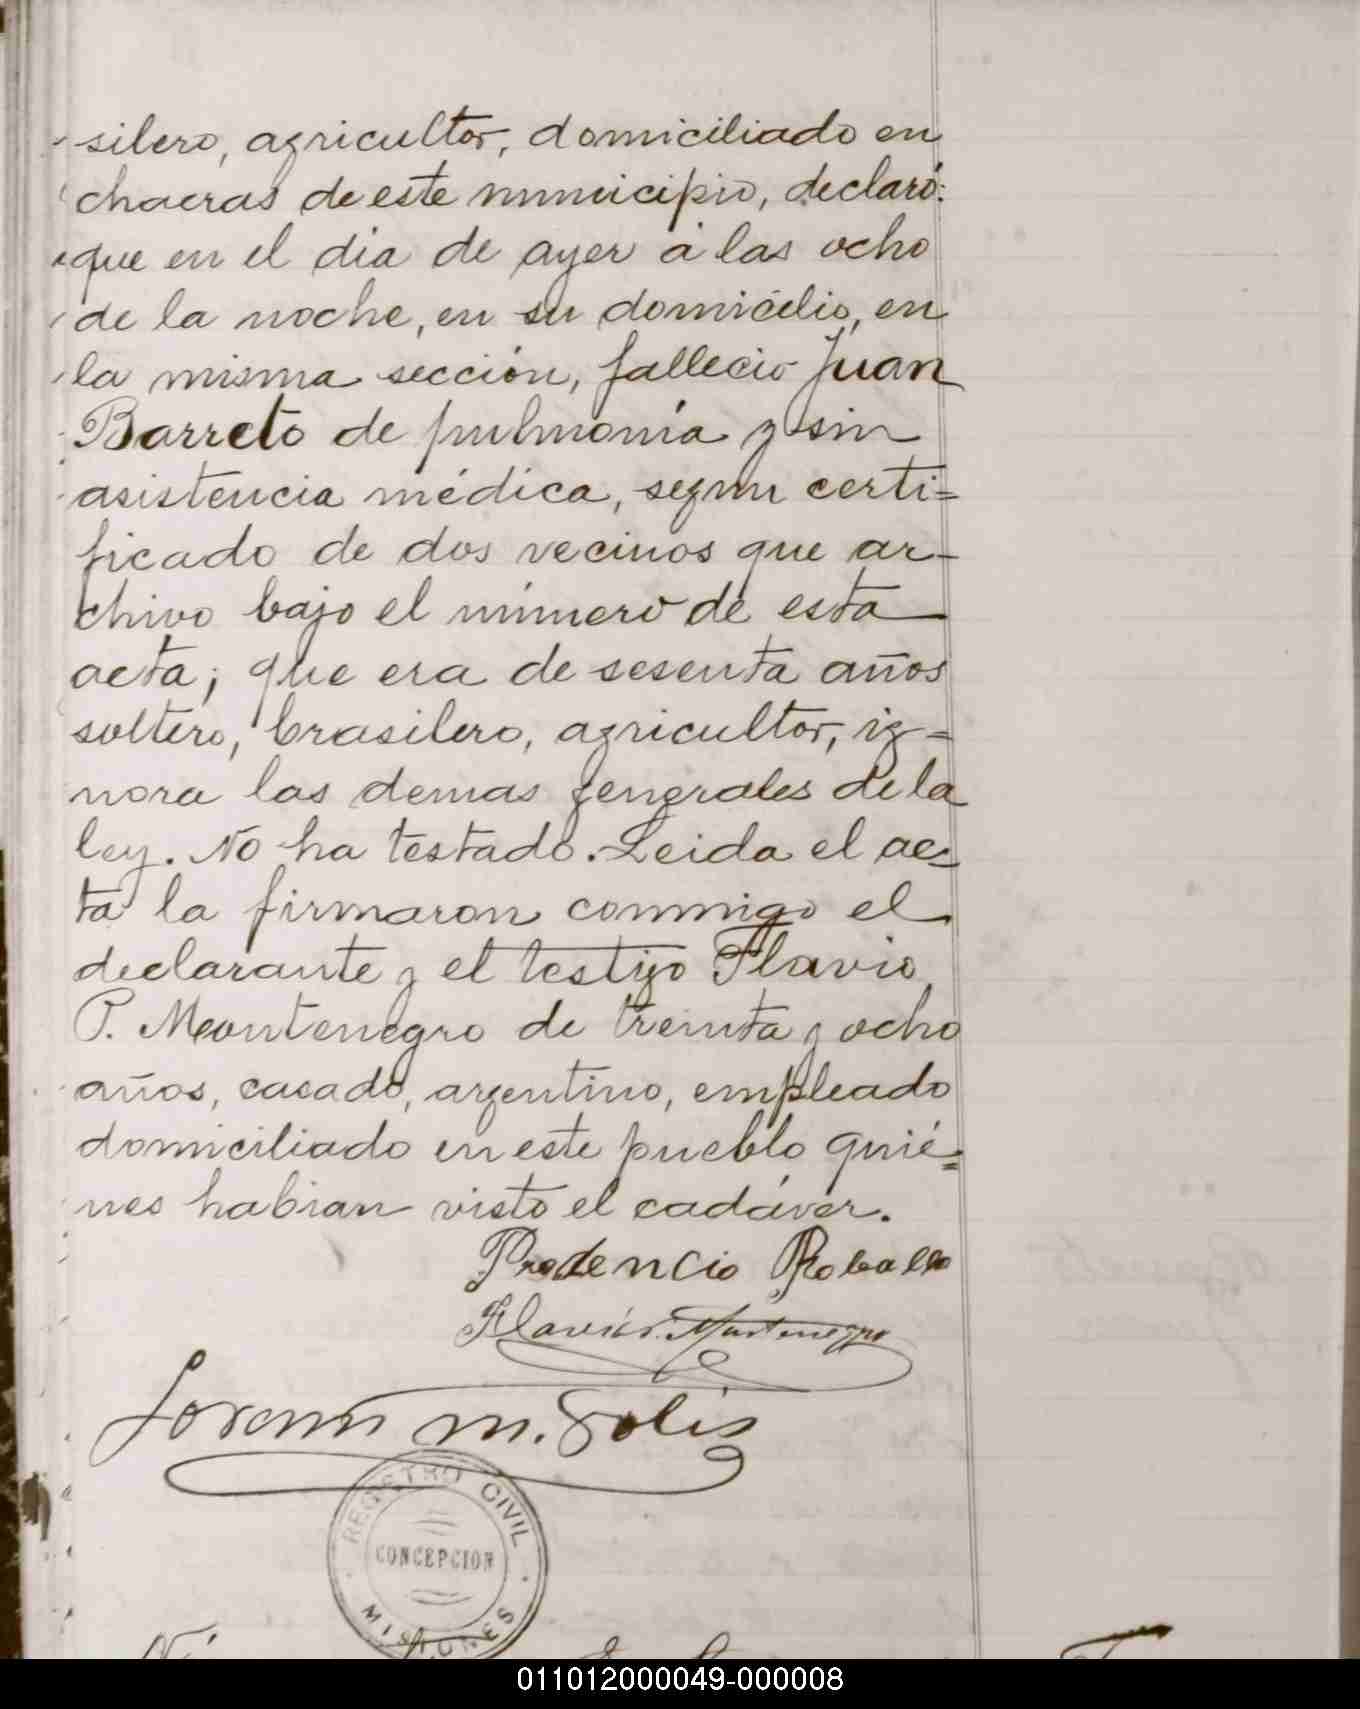 silero, agricultor, domiciliado en
chacras de este municipio, declaró:
que en el dia de ayer á las ocho
de la noche, en su domicilio, en
la misma sección, fallecio Juan
Barreto de pulmonía y sin
asistencia médica, segun certi=
ficado de dos vecinos que ar-
chivo bajo el número de esta
acta; que era de sesenta años
soltero, brasilero, agricultor, ig=
nora las demas generales de la
ley. No ha testado. Leida el ac=
ta la firmaron conmigo el
declarante y el testigo Flavio
P. Montenegro de treinta y ocho
años, casado, argentino, empleado
domiciliado en este pueblo quié=
nes habian visto el cadáver.
Prodencio Roballo
Flavio P. Montenegro
M. Solis
REGISTRO CIVIL
CONCEPCION
MISIONES
011012000049-000008